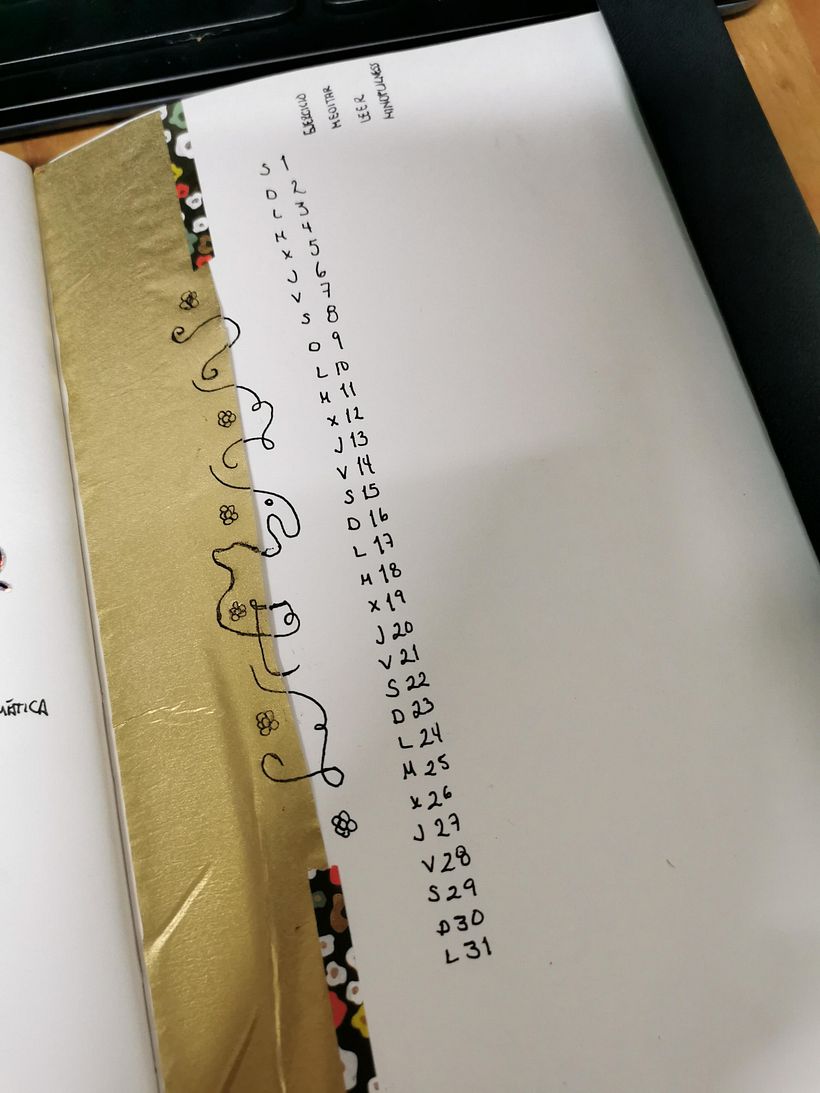 EJERCICIO
MEDITAR
LEER
MINDFULNESS
S 1
D 2
L 3
M 4
X 5
J 6
V 7
S 8
D 9
L 10
M 11
X 12
J 13
V 14
S 15
D 16
L 17
M 18
X 19
J 20
V 21
S 22
D 23
L 24
M 25
X 26
J 27
V 28
S 29
D 30
L 31
MÁTICA